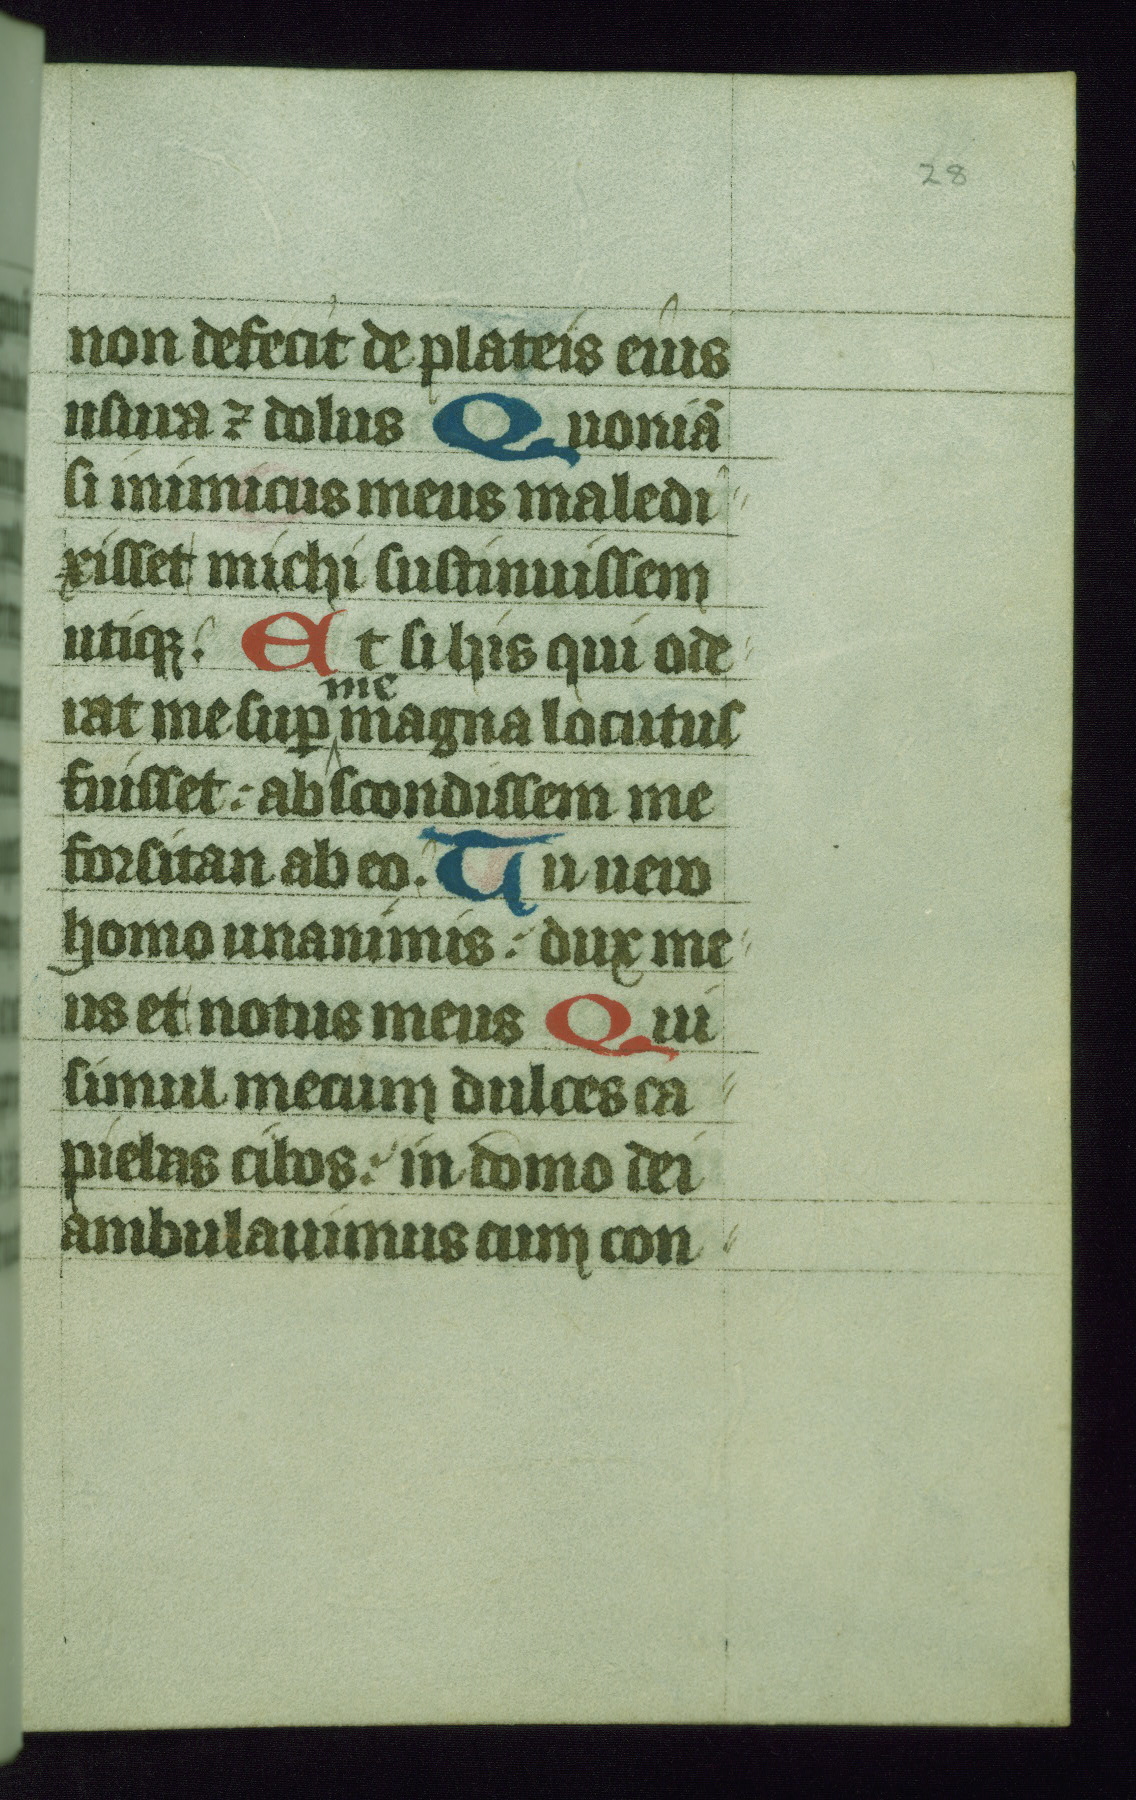 28
non defecit de plateis eius
usura ⁊ dolus Quoniā
si inimicus meus maledi〃
xisset michi sustinuissem
utiqꝫ: Et si his qui ode〃
me
rat me suꝑ magna locutus
fuisset: abscondissem me
forsitan ab eo. Tu uero
homo unanimis: dux me〃
us et notus meus Qui
simul mecum dulces ca〃
piebas cibos: in domo dei
ambulauimus cum con〃